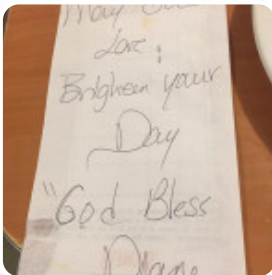 May
Love:
Brighten your
Day
"God Bless
Diane